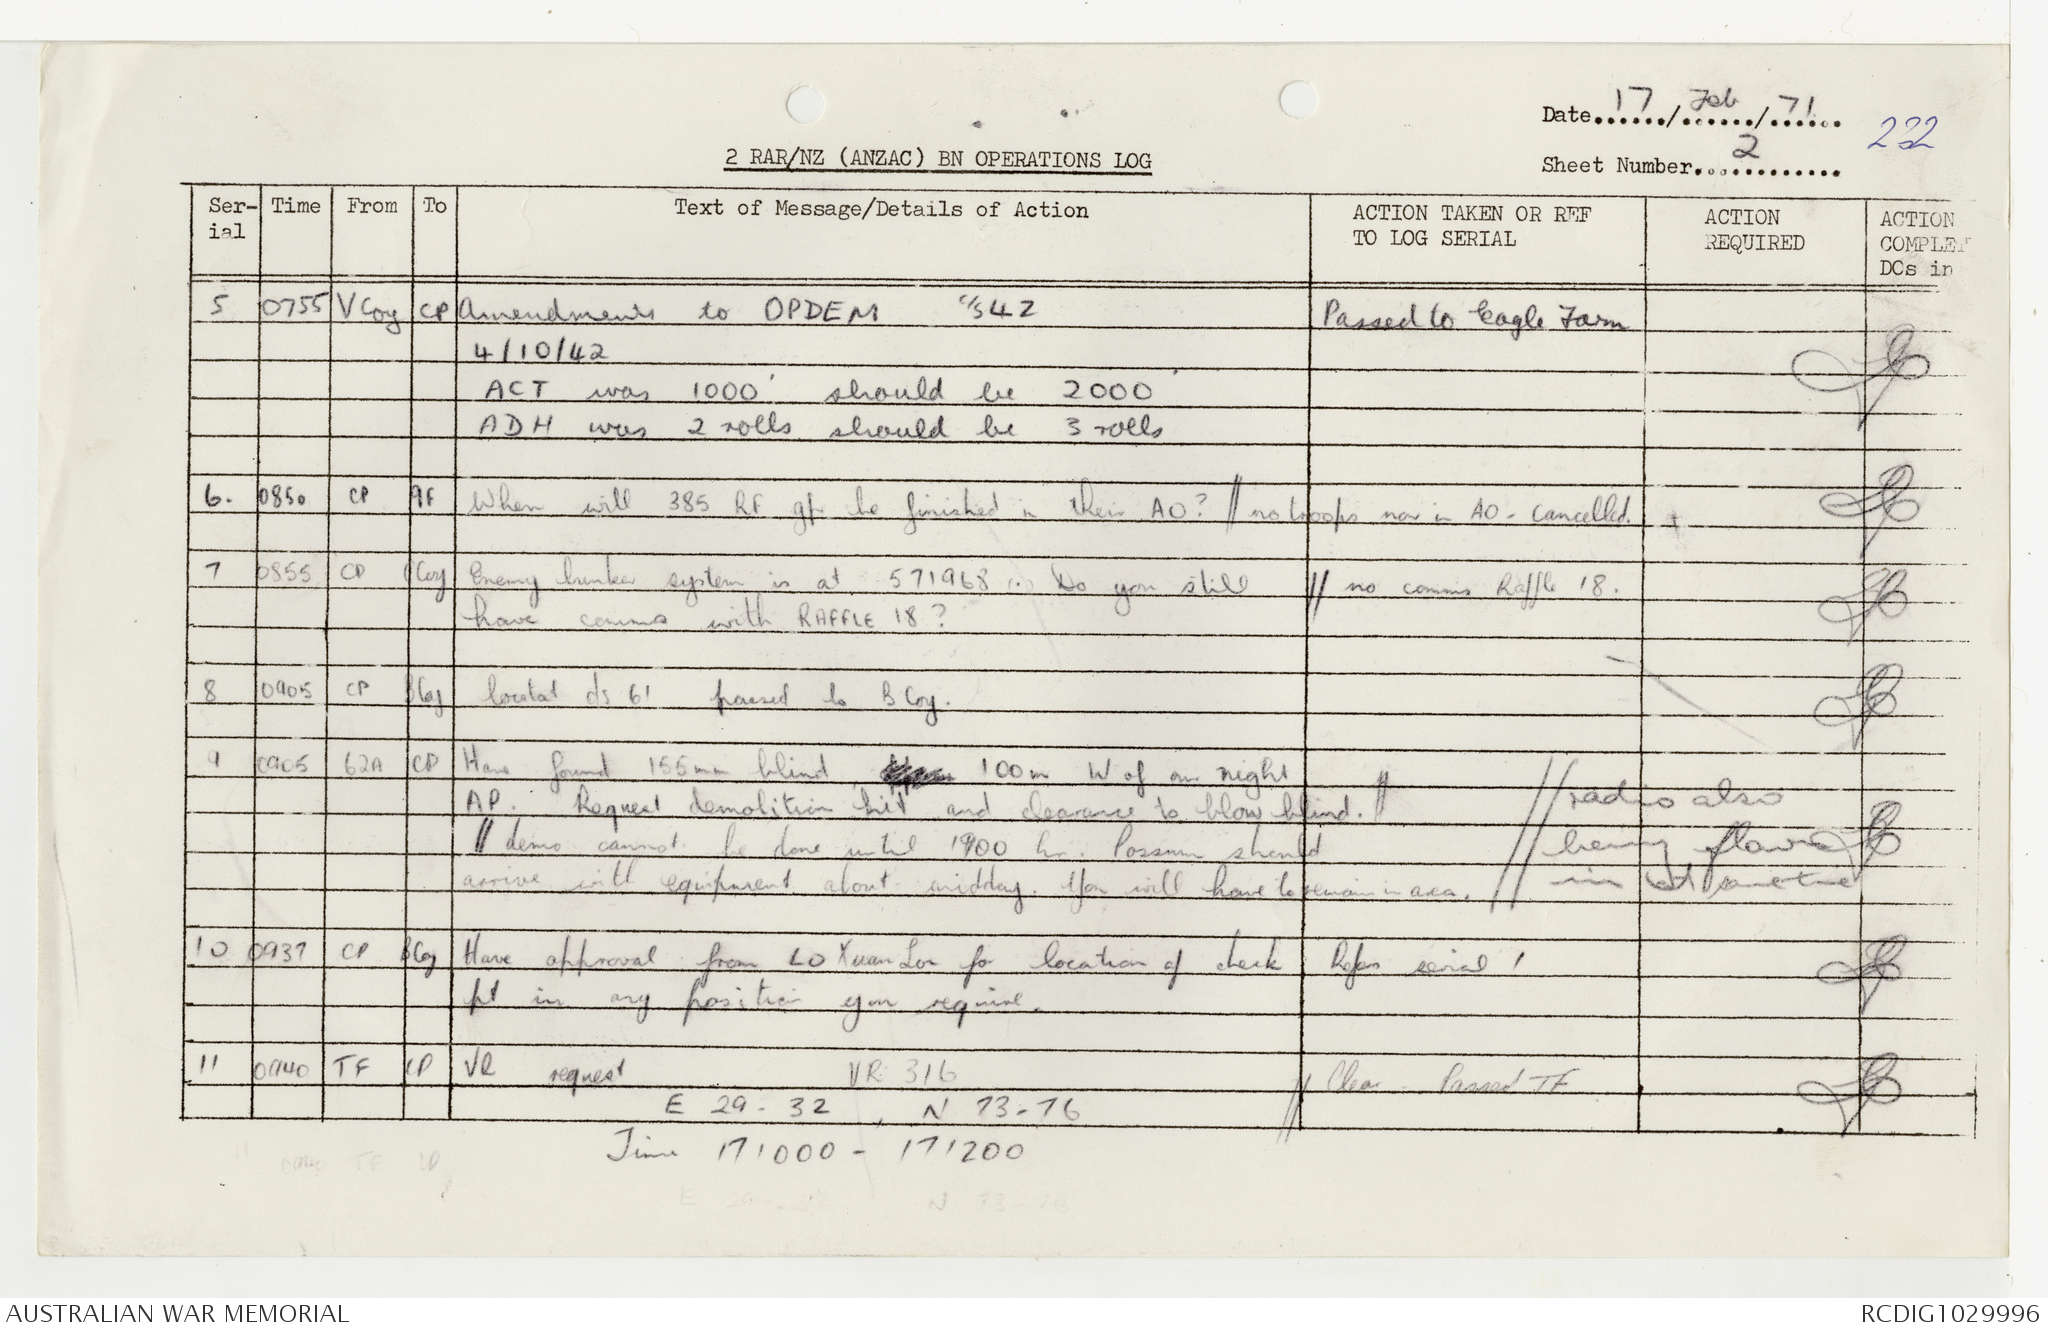 Date 17/Feb/71
232
Sheet Number 2
2 RAR/NZ (ANZAC) BN OPERATIONS LOG
Ser-ial Time From To Text of Message/Details of Action ACTION TAKEN OR REF TO LOG SERIAL ACTION REQUIRED ACTION COMPLET DCs in
5 0755 V Coy CP Amendments to OPDEM 42 Passed to Eagle Farm
4/10/42
ACT was 1000' should be 2000'
ADH was 2 rolls should be 3 rolls
6. 0850 CP TF When will 385 RF gp be finished in their AO? // no troops now in AO - cancelled.
7 0855 CP Coy Enemy bunker system is at 571968 Do you still // no comms Raffle 18.
have comms with RAFFLE 18?
8 0905 CP B Coy locstat ds 61 passed to B Coy.
9 0905 62A CP Have found 155mm blind 100m W of our night
AP. Request demolition kit and clearance to blow blind. // // radio also
// demo cannot be done until 1900 hr. Possum should // being flown
arrive with equipment about midday. You will have to remain in area. // in at same time
10 0937 CP B Coy Have approval from LO Xuan Loc for location of check Refers serial 1
pt in any position you require.
11 0940 TF CP VR request VR 316 // Clear - Passed TF
E 29-32, N 73-76
Time 171000 - 171200
11 0940 TF CP
E 29-32 N 73-76
AUSTRALIAN WAR MEMORIAL
RCDIG1029996